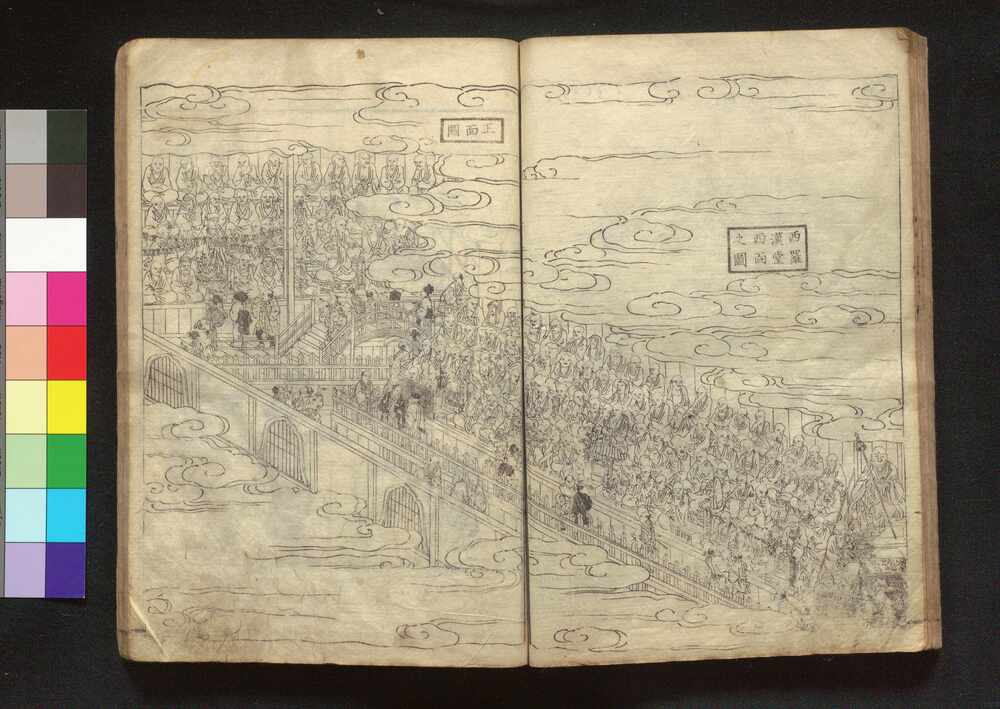 西羅
漢堂
西面
之圖
正面圖